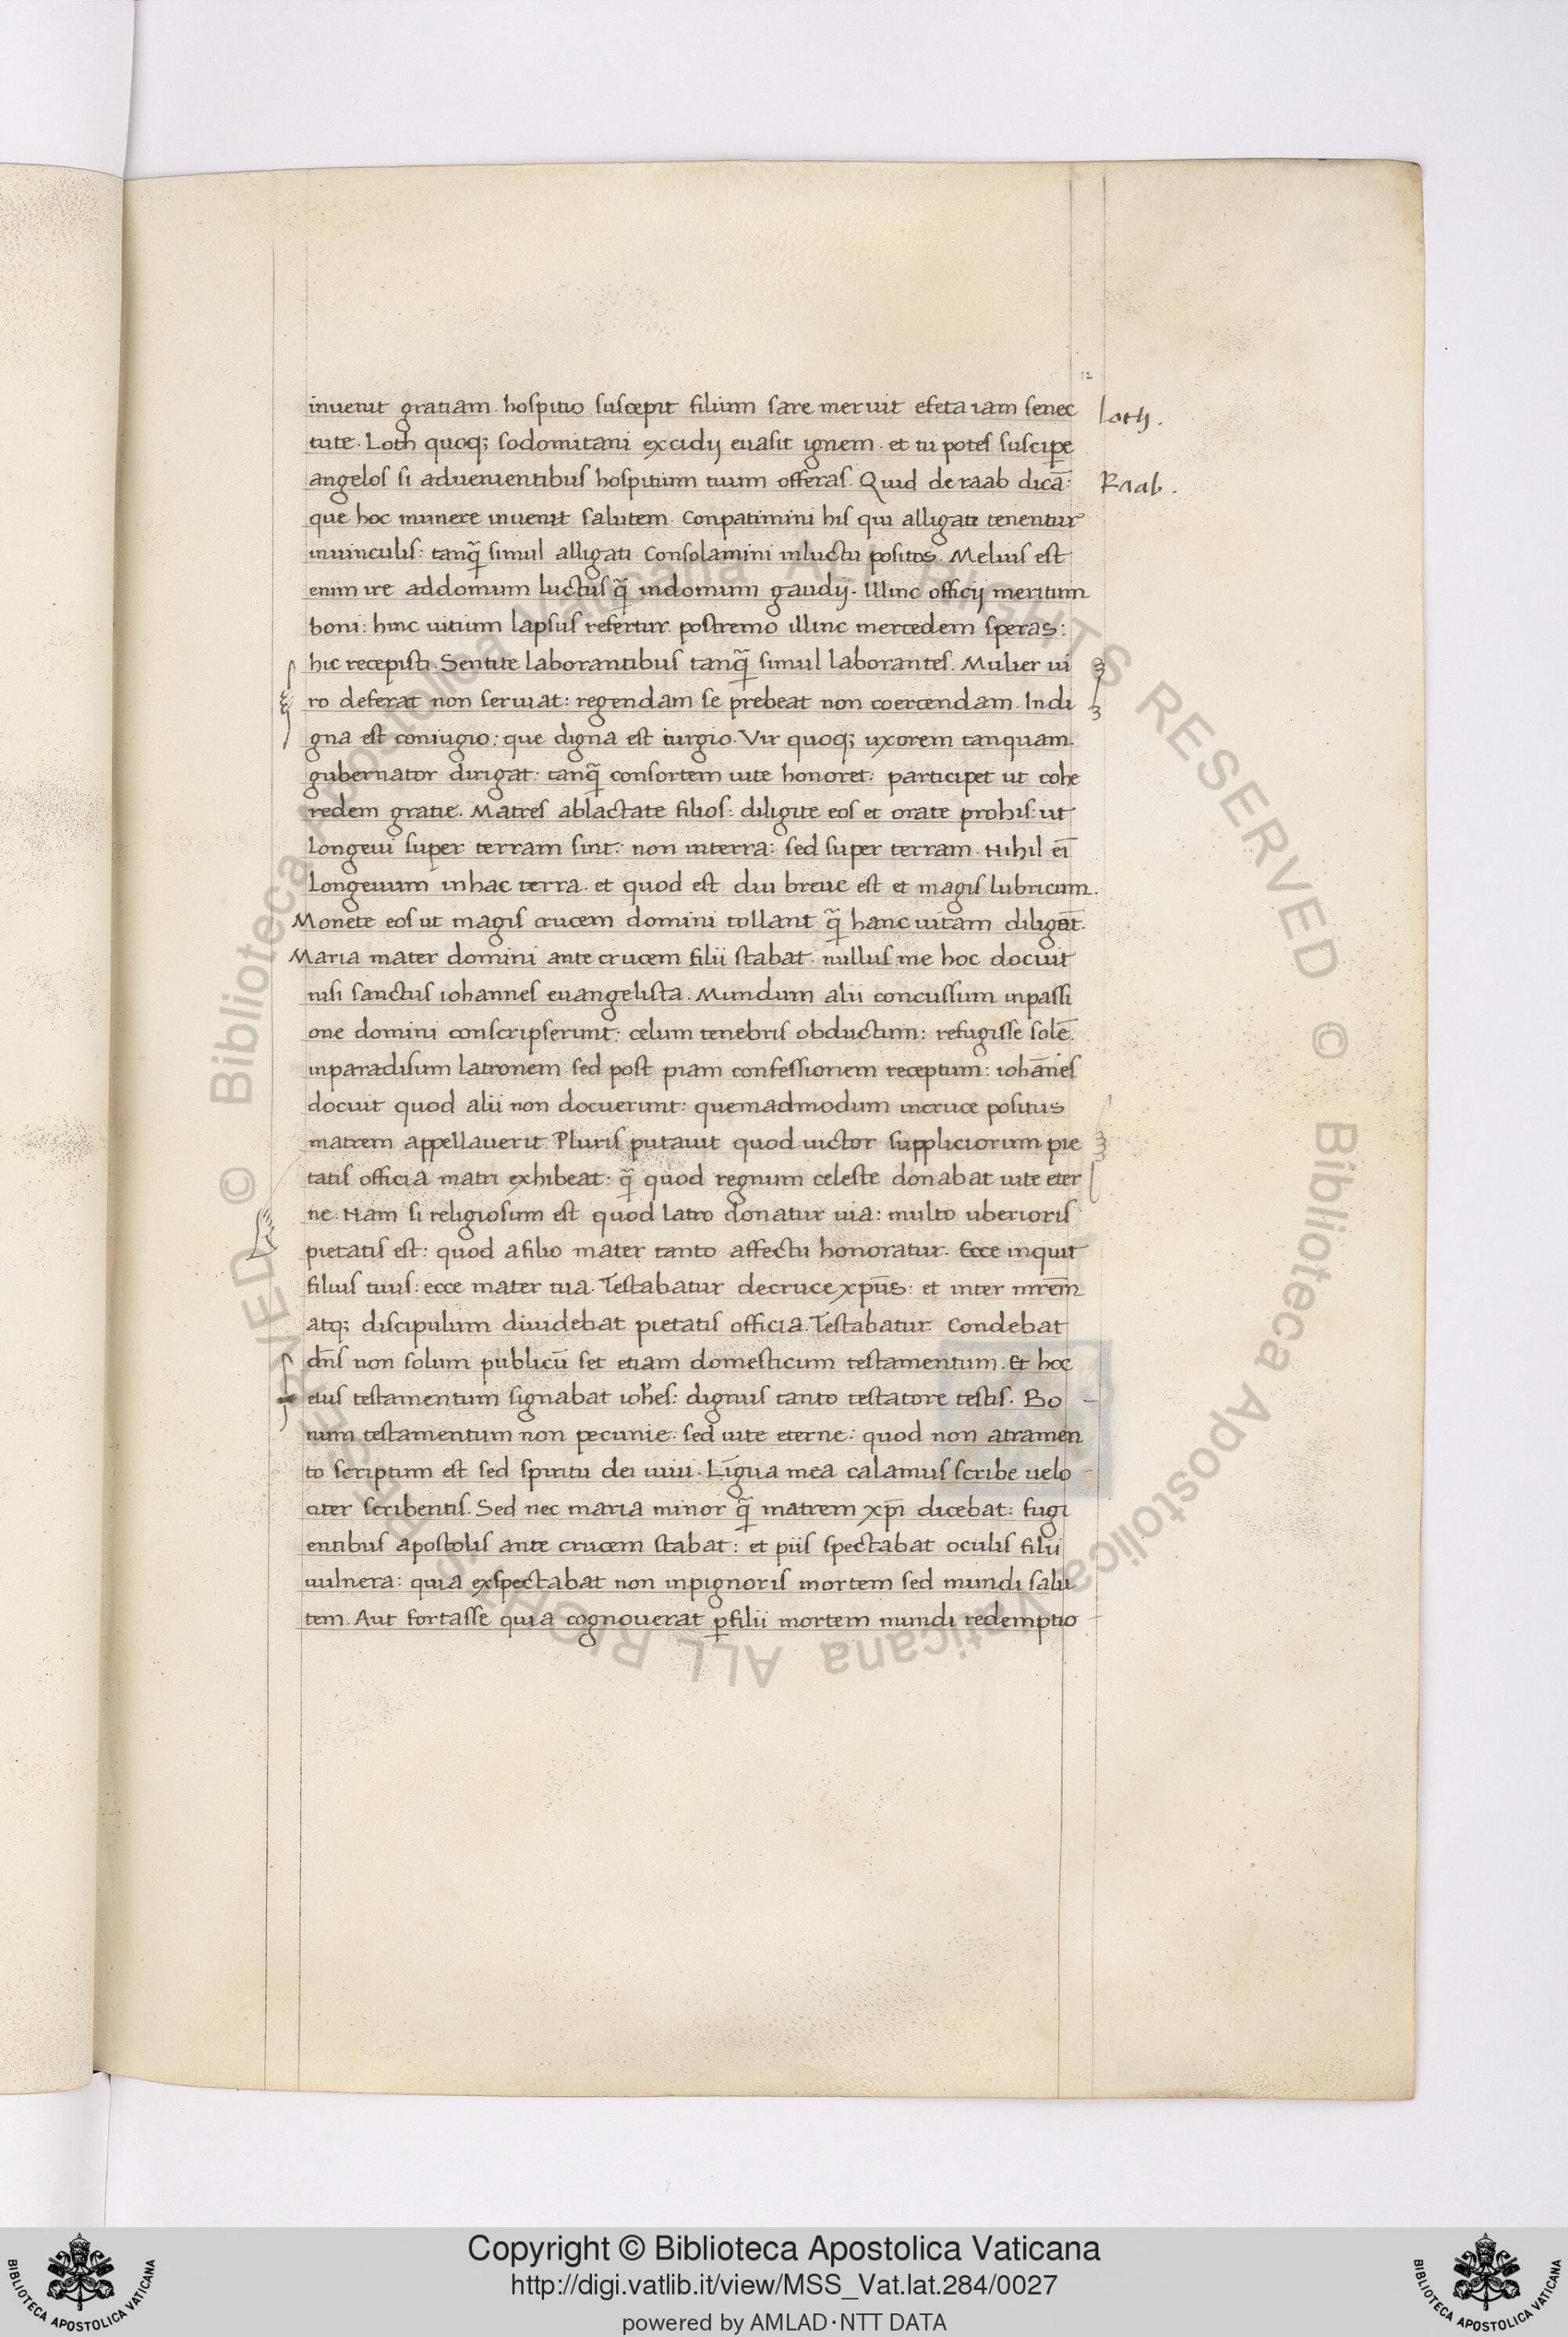 12
inuenit gratiam. hospitio suscepit filium sare meruit efeta iam senec
loth.
tute. Loth quoq; sodomitani excidij euasit ignem. et tu potes suscipe
angelos si aduenientibus hospitium tuum offeras. Quid de raab dicā:
Raab.
que hoc munere inuenit salutem. Conpatimini his qui alligati tenentur
inuinculis: tanq̃ simul alligati. Consolamini inluctu positos. Melius est
enim ire addomum luctus q̃ indomum gaudij. Illinc officij meritum
boni: hinc uitium lapsus refertur. postremo illinc mercedem speras:
hic recepisti. Sentite laborantibus tanq̃ simul laborantes. Mulier ui
ro deferat non seruiat: regendam se prebeat non coercendam. Indi
gna est coniugio: que digna est iurgio. Vir quoq; uxorem tanquam
gubernator dirigat: tanq̃ consortem uite honoret: participet ut cohe
redem gratie. Matres ablactate filios: diligite eos et orate prohis: ut
Longeui super terram sint: non interra: sed super terram. Nihil ei̅
Longeuum inhac terra. et quod est diu breue est et magis lubricum.
Monete eos ut magis crucem domini tollant q̃ hanc uitam diligāt.
Maria mater domini ante crucem filii stabat. nullus me hoc docuit
nisi sanctus iohannes euangelista. Mundum alii concussum inpassi
one domini conscripserunt: celum tenebris obductum: refugisse solē.
inparadisum latronem sed post piam confessionem receptum: iohānes
docuit quod alii non docuerunt: quemadmodum incruce positus
matrem appellauerit. Pluris putauit quod uictor suppliciorum pie
tatis officia matri exhibeat: q̃ quod regnum celeste donabat uite eter
ne. Nam si religiosum est quod latro donatur uia: multo uberioris
pietatis est: quod afilio mater tanto affectu honoratur. Ecce inquit
filius tuus: ecce mater tua. Testabatur decruce xp̅us: et inter mr̅em
atq; discipulum diuidebat pietatis officia. Testabatur. Condebat
dn̅s non solum publicū set etiam domesticum testamentum. Et hoc
eius testamentum signabat ioh̅es: dignus tanto testatore testis. Bo
num testamentum non pecunie: sed uite eterne: quod non atramen
to scriptum est sed spiritu dei uiui. Līgua mea calamus scribe uelo
citer scribentis. Sed nec maria minor q̃ matrem xp̅i dicebat: fugi
entibus apostolis ante crucem stabat: et piis spectabat oculis filii
uulnera: quia exspectabat non inpignoris mortem sed mundi salu
tem. Aut fortasse quia cognouerat ꝑfilii mortem mundi redemptio
© Biblioteca Apostolica Vaticana ALL RIGHTS RESERVED © Biblioteca Apostolica Vaticana ALL RIGHTS RESERVED
Copyright © Biblioteca Apostolica Vaticana
http://digi.vatlib.it/view/MSS_Vat.lat.284/0027
powered by AMLAD·NTT DATA
BIBLIOTECA APOSTOLICA VATICANA
BIBLIOTECA APOSTOLICA VATICANA